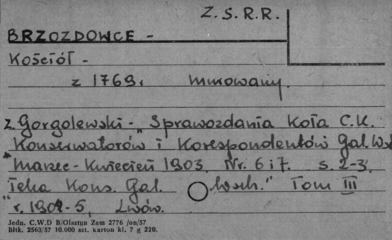 Z.S.R.R.
BRZOZDOWCE -
Kościół -
z 1769r. murowany.
z. Gorgolewski - "Sprawozdania Koła C.K.
Konserwatorów i Korespondentów Gal. Wsch.
marzec - kwiecień 1903, Nr. 6 i 7. s. 2-3,
Teka Kons. Gal. Wsch." Tom III
r. 1904-5, Lwów.
Jedn. C.W.D B/Olsztyn Zam 2776 /on/57
Bltk. 2563/57 10.000 szt. karton kl. 7 g 220.